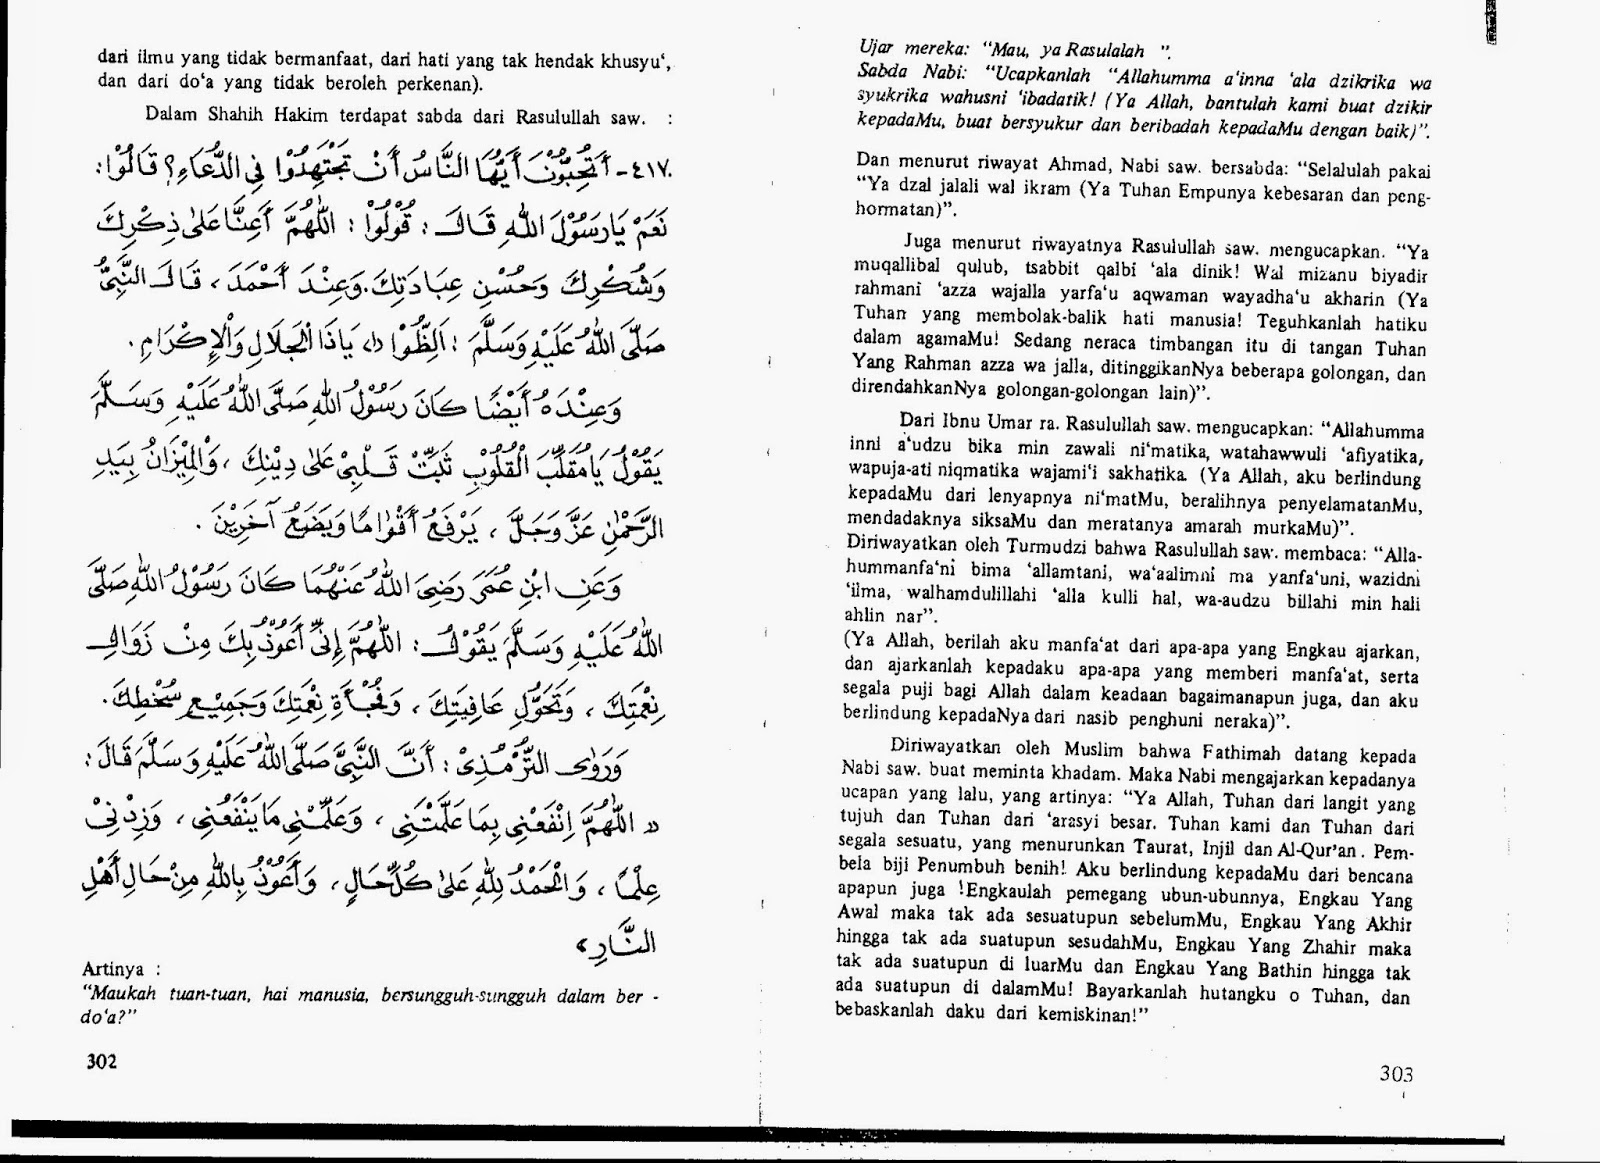 dari ilmu yang tidak bermanfaat, dari hati yang tak hendak khusyu‘,
dan dari do‘a yang tidak beroleh perkenan).
Dalam Shahih Hakim terdapat sabda dari Rasulullah saw. :
٤١٧- أَتُحِبُّوْنَ أَيُّهَا النَّاسُ أَنْ تَجْتَهِدُوْا فِي الدُّعَاءِ؟ قَالُوْا:
نَعَمْ يَارَسُوْلَ اللهِ قَالَ: قُوْلُوْا: اَللّٰهُمَّ أَعِنَّا عَلَى ذِكْرِكَ
وَشُكْرِكَ وَحُسْنِ عِبَادَتِكَ. وَعِنْدَ أَحْمَدَ، قَالَ النَّبِيُّ
صَلَّى اللهُ عَلَيْهِ وَسَلَّمَ: اَلِظُّوْا (١) يَاذَا الْجَلَالِ وَالْإِكْرَامِ.
وَعِنْدَهُ أَيْضًا كَانَ رَسُوْلُ اللهِ صَلَّى اللهُ عَلَيْهِ وَسَلَّمَ
يَقُوْلُ يَامُقَلِّبَ الْقُلُوْبِ ثَبِّتْ قَلْبِيْ عَلَى دِيْنِكَ، وَالْمِيْزَانُ بِيَدِ
الرَّحْمٰنِ عَزَّ وَجَلَّ، يَرْفَعُ أَقْوَامًا وَيَضَعُ آخَرِيْنَ.
وَعَنِ ابْنِ عُمَرَ رَضِيَ اللهُ عَنْهُمَا كَانَ رَسُوْلُ اللهِ صَلَّى
اللهُ عَلَيْهِ وَسَلَّمَ يَقُوْلُ: اَللّٰهُمَّ إِنِّيْ أَعُوْذُ بِكَ مِنْ زَوَالِ
نِعْمَتِكَ، وَتَحَوُّلِ عَافِيَتِكَ، وَفُجْأَةِ نِعْمَتِكَ وَجَمِيْعِ سُخْطِكَ.
وَرَوٰى التُّرْمُذِيْ: أَنَّ النَّبِيَّ صَلَّى اللهُ عَلَيْهِ وَسَلَّمَ قَالَ:
« اَللّٰهُمَّ انْفَعْنِيْ بِمَا عَلَّمْتَنِيْ، وَعَلِّمْنِيْ مَا يَنْفَعُنِيْ، وَزِدْنِيْ
عِلْمًا، وَالْحَمْدُ لِلّٰهِ عَلَى كُلِّ حَالٍ، وَأَعُوْذُ بِاللهِ مِنْ حَالِ أَهْلِ
النَّارِ »
Artinya :
“Maukah tuan-tuan, hai manusia, bersungguh-sungguh dalam ber -
do‘a?”
302
Ujar mereka: “Mau, ya Rasulalah ”.
Sabda Nabi: “Ucapkanlah “Allahumma a‘inna ‘ala dzikrika wa
syukrika wahusni ‘ibadatik! (Ya Allah, bantulah kami buat dzikir
kepadaMu, buat bersyukur dan beribadah kepadaMu dengan baik)”.
Dan menurut riwayat Ahmad, Nabi saw. bersabda: “Selalulah pakai
“Ya dzal jalali wal ikram (Ya Tuhan Empunya kebesaran dan peng-
hormatan)”.
Juga menurut riwayatnya Rasulullah saw. mengucapkan. “Ya
muqallibal qulub, tsabbit qalbi ‘ala dinik! Wal mizanu biyadir
rahmani ‘azza wajalla yarfa‘u aqwaman wayadha‘u akharin (Ya
Tuhan yang membolak-balik hati manusia! Teguhkanlah hatiku
dalam agamaMu! Sedang neraca timbangan itu di tangan Tuhan
Yang Rahman azza wa jalla, ditinggikanNya beberapa golongan, dan
direndahkanNya golongan-golongan lain)”.
Dari Ibnu Umar ra. Rasulullah saw. mengucapkan: “Allahumma
inni a‘udzu bika min zawali ni‘matika, watahawwuli ‘afiyatika,
wapuja-ati niqmatika wajami‘i sakhatika. (Ya Allah, aku berlindung
kepadaMu dari lenyapnya ni‘matMu, beralihnya penyelamatanMu,
mendadaknya siksaMu dan meratanya amarah murkaMu)”.
Diriwayatkan oleh Turmudzi bahwa Rasulullah saw. membaca: “Alla-
hummanfa‘ni bima ‘allamtani, wa‘aalimni ma yanfa‘uni, wazidni
‘ilma, walhamdulillahi ‘alla kulli hal, wa-audzu billahi min hali
ahlin nar”.
(Ya Allah, berilah aku manfa‘at dari apa-apa yang Engkau ajarkan,
dan ajarkanlah kepadaku apa-apa yang memberi manfa‘at, serta
segala puji bagi Allah dalam keadaan bagaimanapun juga, dan aku
berlindung kepadaNya dari nasib penghuni neraka)”.
Diriwayatkan oleh Muslim bahwa Fathimah datang kepada
Nabi saw. buat meminta khadam. Maka Nabi mengajarkan kepadanya
ucapan yang lalu, yang artinya: “Ya Allah, Tuhan dari langit yang
tujuh dan Tuhan dari ‘arasyi besar. Tuhan kami dan Tuhan dari
segala sesuatu, yang menurunkan Taurat, Injil dan Al-Qur’an. Pem-
bela biji Penumbuh benih! Aku berlindung kepadaMu dari bencana
apapun juga !Engkaulah pemegang ubun-ubunnya, Engkau Yang
Awal maka tak ada sesuatupun sebelumMu, Engkau Yang Akhir
hingga tak ada suatupun sesudahMu, Engkau Yang Zhahir maka
tak ada suatupun di luarMu dan Engkau Yang Bathin hingga tak
ada suatupun di dalamMu! Bayarkanlah hutangku o Tuhan, dan
bebaskanlah daku dari kemiskinan!”
303